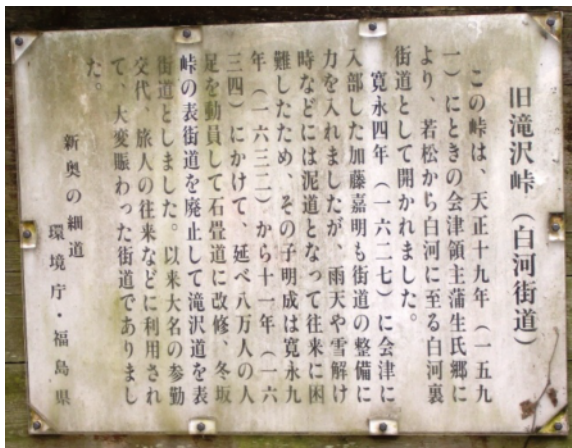 旧滝沢峠（白河街道）
この峠は、天正十九年（一五九
一）にときの会津領主蒲生氏郷に
より、若松から白河に至る白河裏
街道として開かれました。
寛永四年（一六二七）に会津に
入部した加藤嘉明も街道の整備に
力を入れましたが、雨天や雪解け
時などには泥道となって往来に困
難したため、その子明成は寛永九
年（一六三二）から十一年（一六
三四）にかけて、延べ八万人の人
足を動員して石畳道に改修、冬坂
峠の表街道を廃止して滝沢道を表
街道としました。以来大名の参勤
交代、旅人の往来などに利用され
て、大変賑わった街道でありまし
た。
新奥の細道
環境庁・福島県